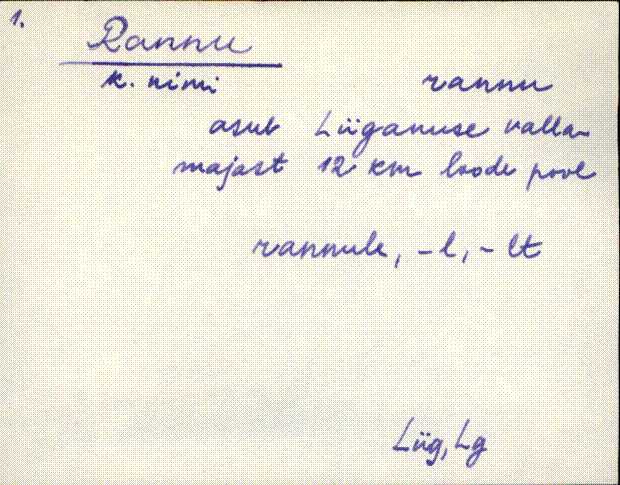 1.
Rannu
k. nimi rannu
asub Lüganuse valla-
majast 12 km loode pool
rannule, -l, -lt
Lüg, Lg